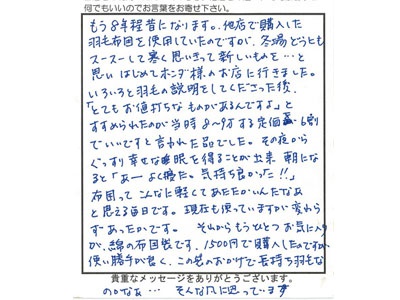 何でもいいのでお言葉をお寄せ下さい。
もう8年程昔になります。他店で購入した
羽毛布団を使用していたのですが、冬場どうも
スースーして寒く思いきって新しいものを…と
思い はじめてホンダ様のお店に行きました。
いろいろと羽毛の説明をしてくださった後、
「とてもお値打ちなものがあるんですよ」と
すすめられたのが当時 8〜9万する定価 6割
でいいですと言われた品でした。その夜から
ぐっすり幸せな睡眠を得ることが出来 朝にな
ると「あー よく寝た。気持ち良かった!!」
布団ってこんなに軽くてあたたかいんだなぁ
と思える毎日です。現在も使っていますが変わら
ずあったかです。 それからもうひとつお気に入り
が、綿の布団袋です。1500円で購入したのですが
使い勝手が良く、この袋のおかげで長持ち羽毛な
貴重なメッセージをありがとうございます。
のかなぁ… そんな風に思っています